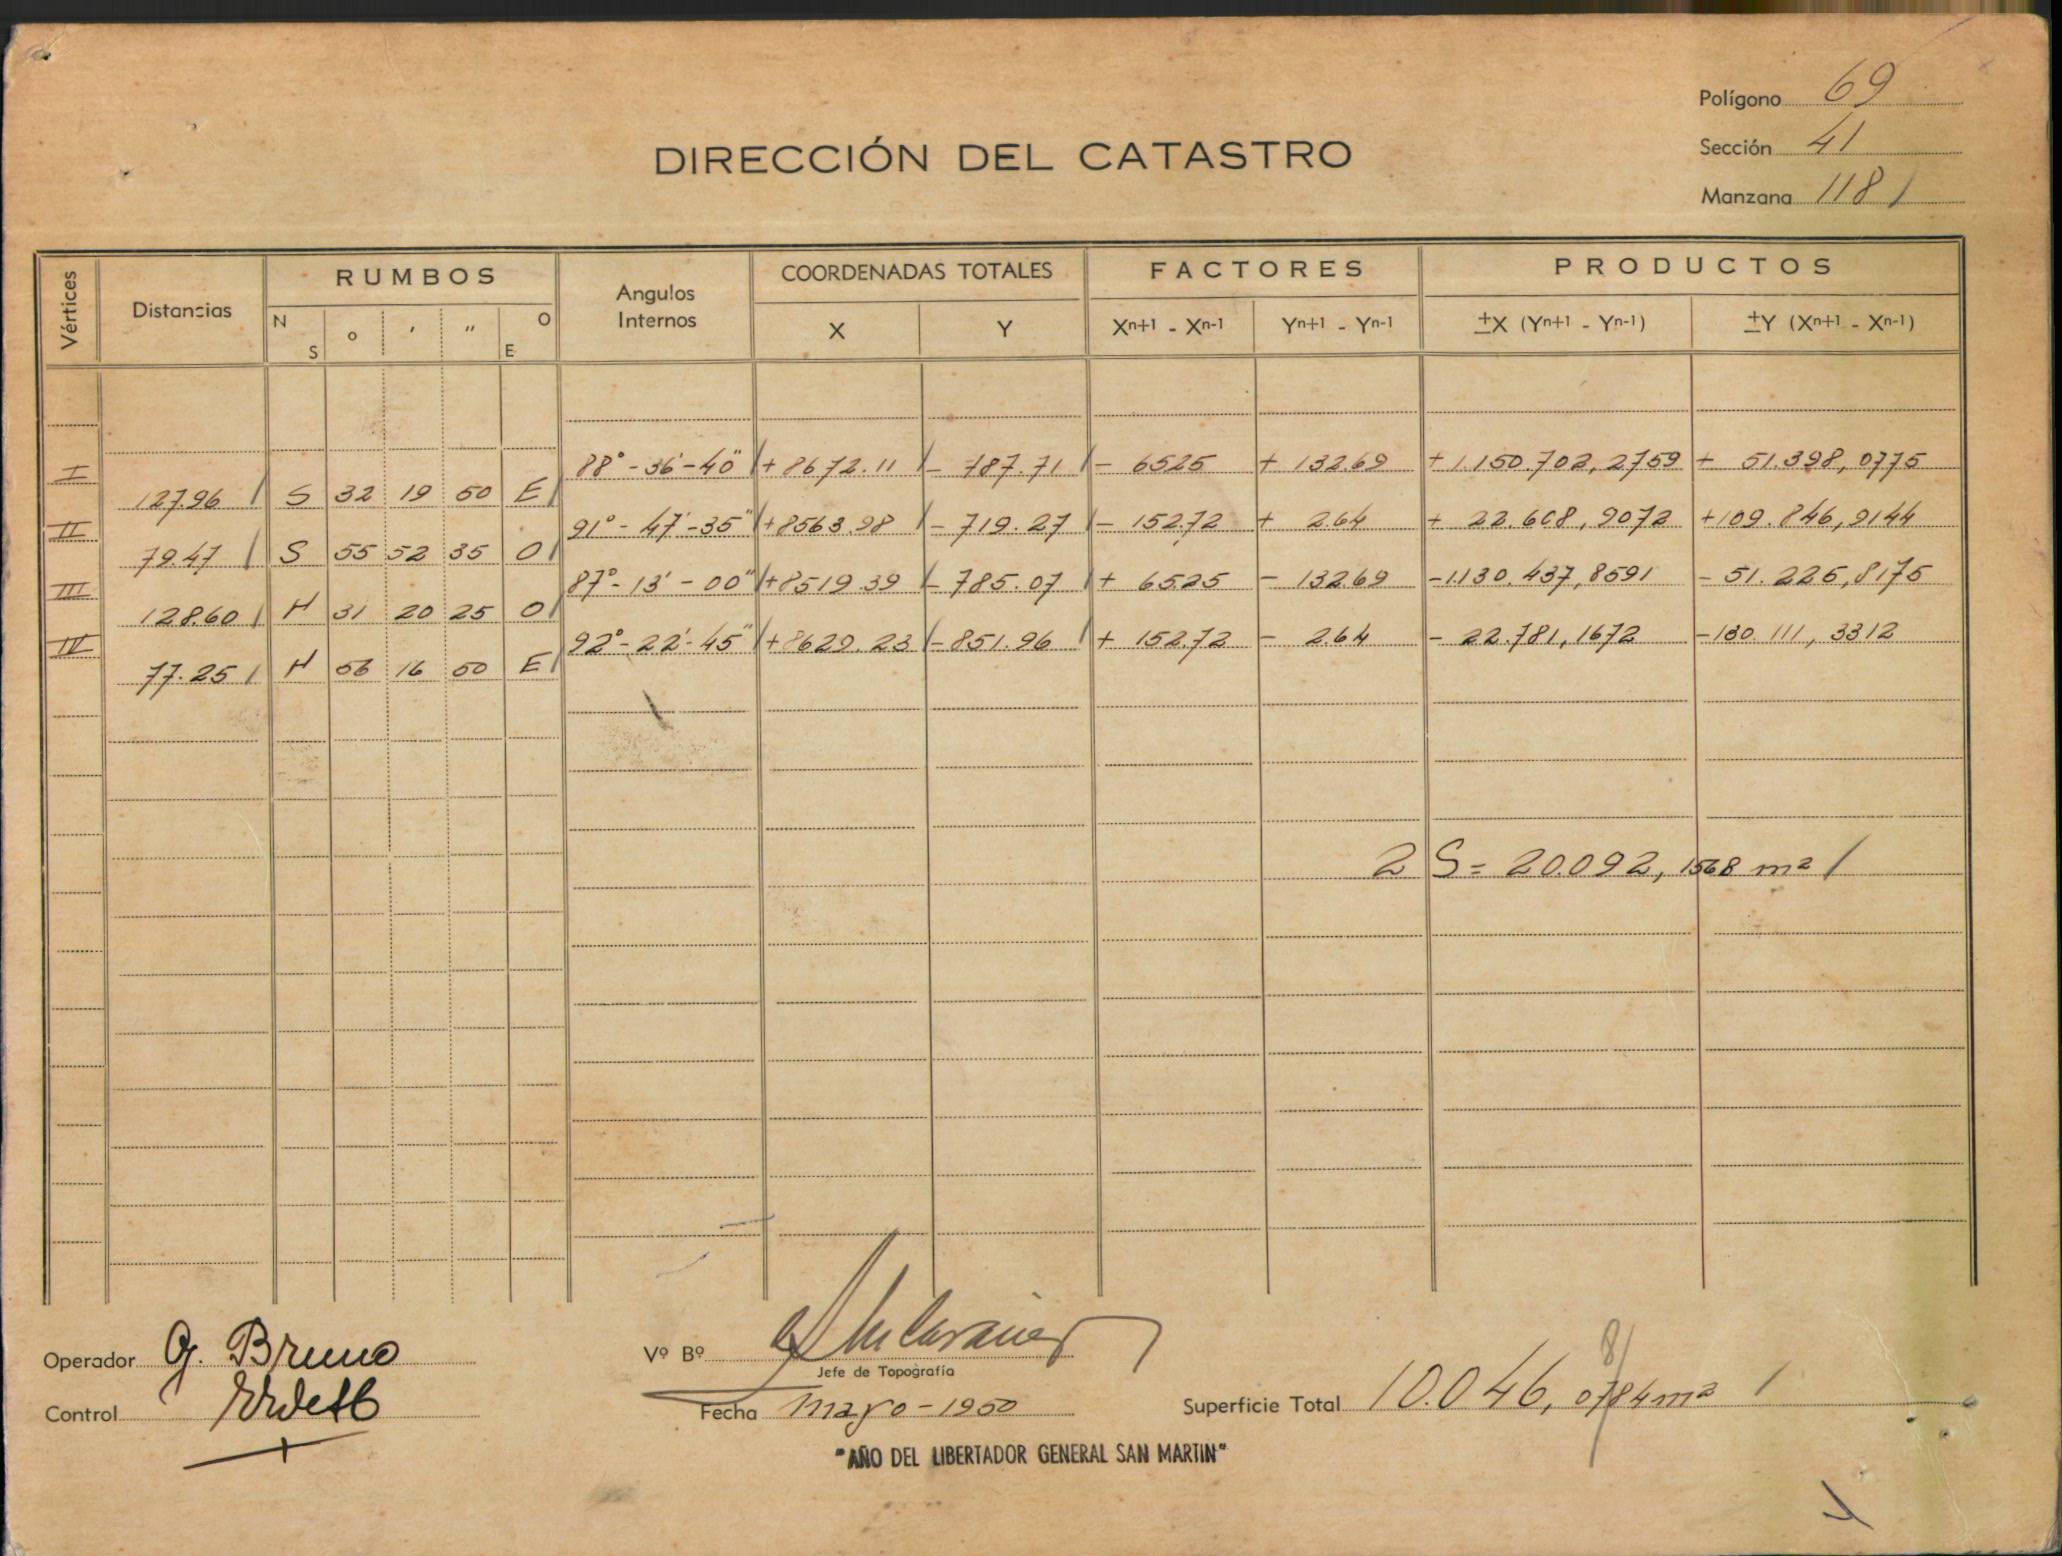 Polígono 69
DIRECCIÓN DEL CATASTRO
Sección 41
Manzana 118
Vértices Distancias RUMBOS Angulos Internos COORDENADAS TOTALES FACTORES PRODUCTOS
N S o ' " O E X Y Xn+1 - Xn-1 Yn+1 - Yn-1 ±X (Yn+1 - Yn-1) ±Y (Xn+1 - Xn-1)
I 88°-36'-40" +8672.11 - 787.71 - 65.25 + 132.69 +1.150.702,2759 + 51.398,0775
127.96 S 32 19 50 E
II 91°-47'-35" +8563.98 - 719.27 - 152.72 + 2.64 + 22.608,9072 +109.846,9144
79.47 S 55 52 35 O
III 87°-13'-00" +8519.39 - 785.07 + 65.25 - 132.69 -1.130.437,8591 - 51.225,8175
128.60 N 31 20 25 O
IV 92°-22'-45" +8629.23 -851.96 + 152.72 - 2.64 - 22.781,1672 -130.111,3312
77.25 N 56 16 50 E
2 S = 20.092,1568 m²
8
Operador G. Bruno Vº Bº
Jefe de Topografía
Control Fecha mayo - 1950 Superficie Total 10.046,0784 m²
"AÑO DEL LIBERTADOR GENERAL SAN MARTIN"